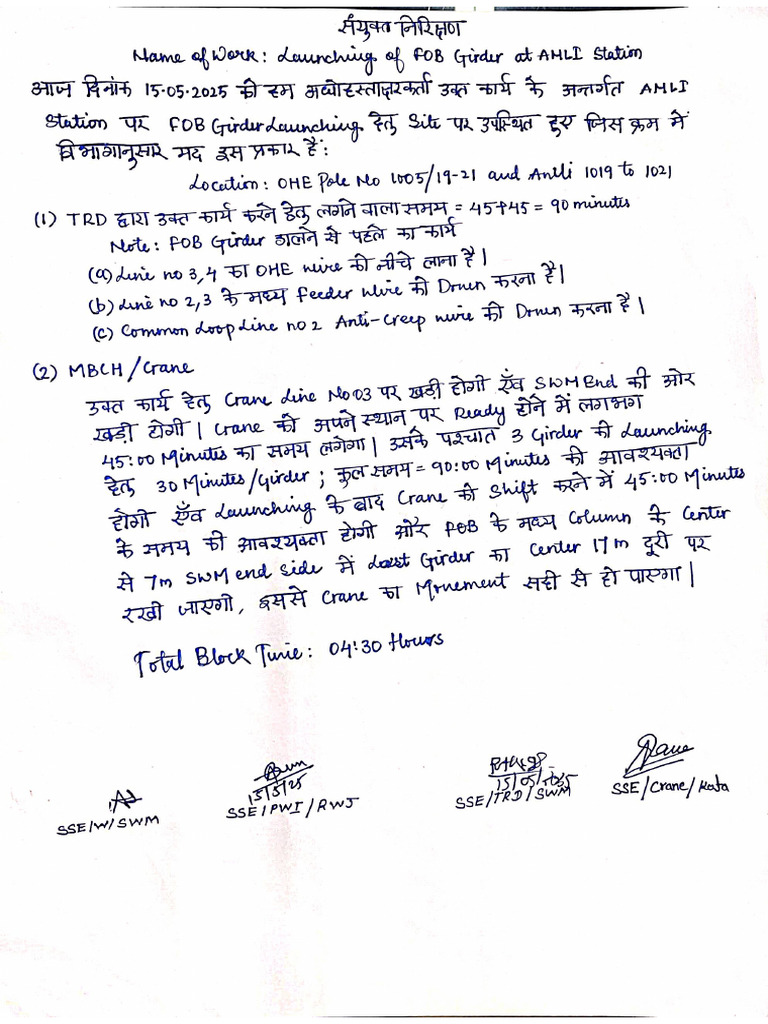 संयुक्त निरिक्षण
Name of Work: Launching of FOB Girder at AMLI Station
आज दिनांक 15.05.2025 को हम अधोहस्ताक्षरकर्ता उक्त कार्य के अन्तर्गत AMLI
Station पर FOB Girder Launching हेतु Site पर उपस्थित हुए जिस क्रम में
विभागानुसार मद इस प्रकार है:
Location: OHE Pole No 1005/19-21 and Amli 1019 to 1021
(1) TRD द्वारा उक्त कार्य करने हेतु लगने वाला समय = 45+45 = 90 minutes
Note: FOB Girder डालने से पहले का कार्य
(a) Line no 3,4 का OHE wire को नीचे लाना है।
(b) Line no 2,3 के मध्य Feeder wire को Down करना है।
(c) Common Loop Line no 2 Anti-Creep wire को Down करना है।
(2) MBCH/Crane
उक्त कार्य हेतु Crane Line No 03 पर खड़ी होगी एँव SWM End की ओर
खड़ी होगी। Crane को अपने स्थान पर Ready होने में लगभग
45:00 Minutes का समय लगेगा। उसके पश्चात 3 Girder की Launching
हेतु 30 Minutes/Girder; कुल समय = 90:00 Minutes की आवश्यक्ता
होगी एँव Launching के बाद Crane को Shift करने में 45:00 Minutes
के समय की आवश्यक्ता होगी और FOB के मध्य Column के Center
से 7m SWM end Side में Last Girder का Center 17m दूरी पर
रखी जाएगी, इससे Crane का Movement सही से हो पाएगा।
Total Block Time: 04:30 Hours
15/5/25
15/05/2025
SSE/W/SWM
SSE/PWI/RWJ
SSE/TRD/SWM
SSE/Crane/Kota